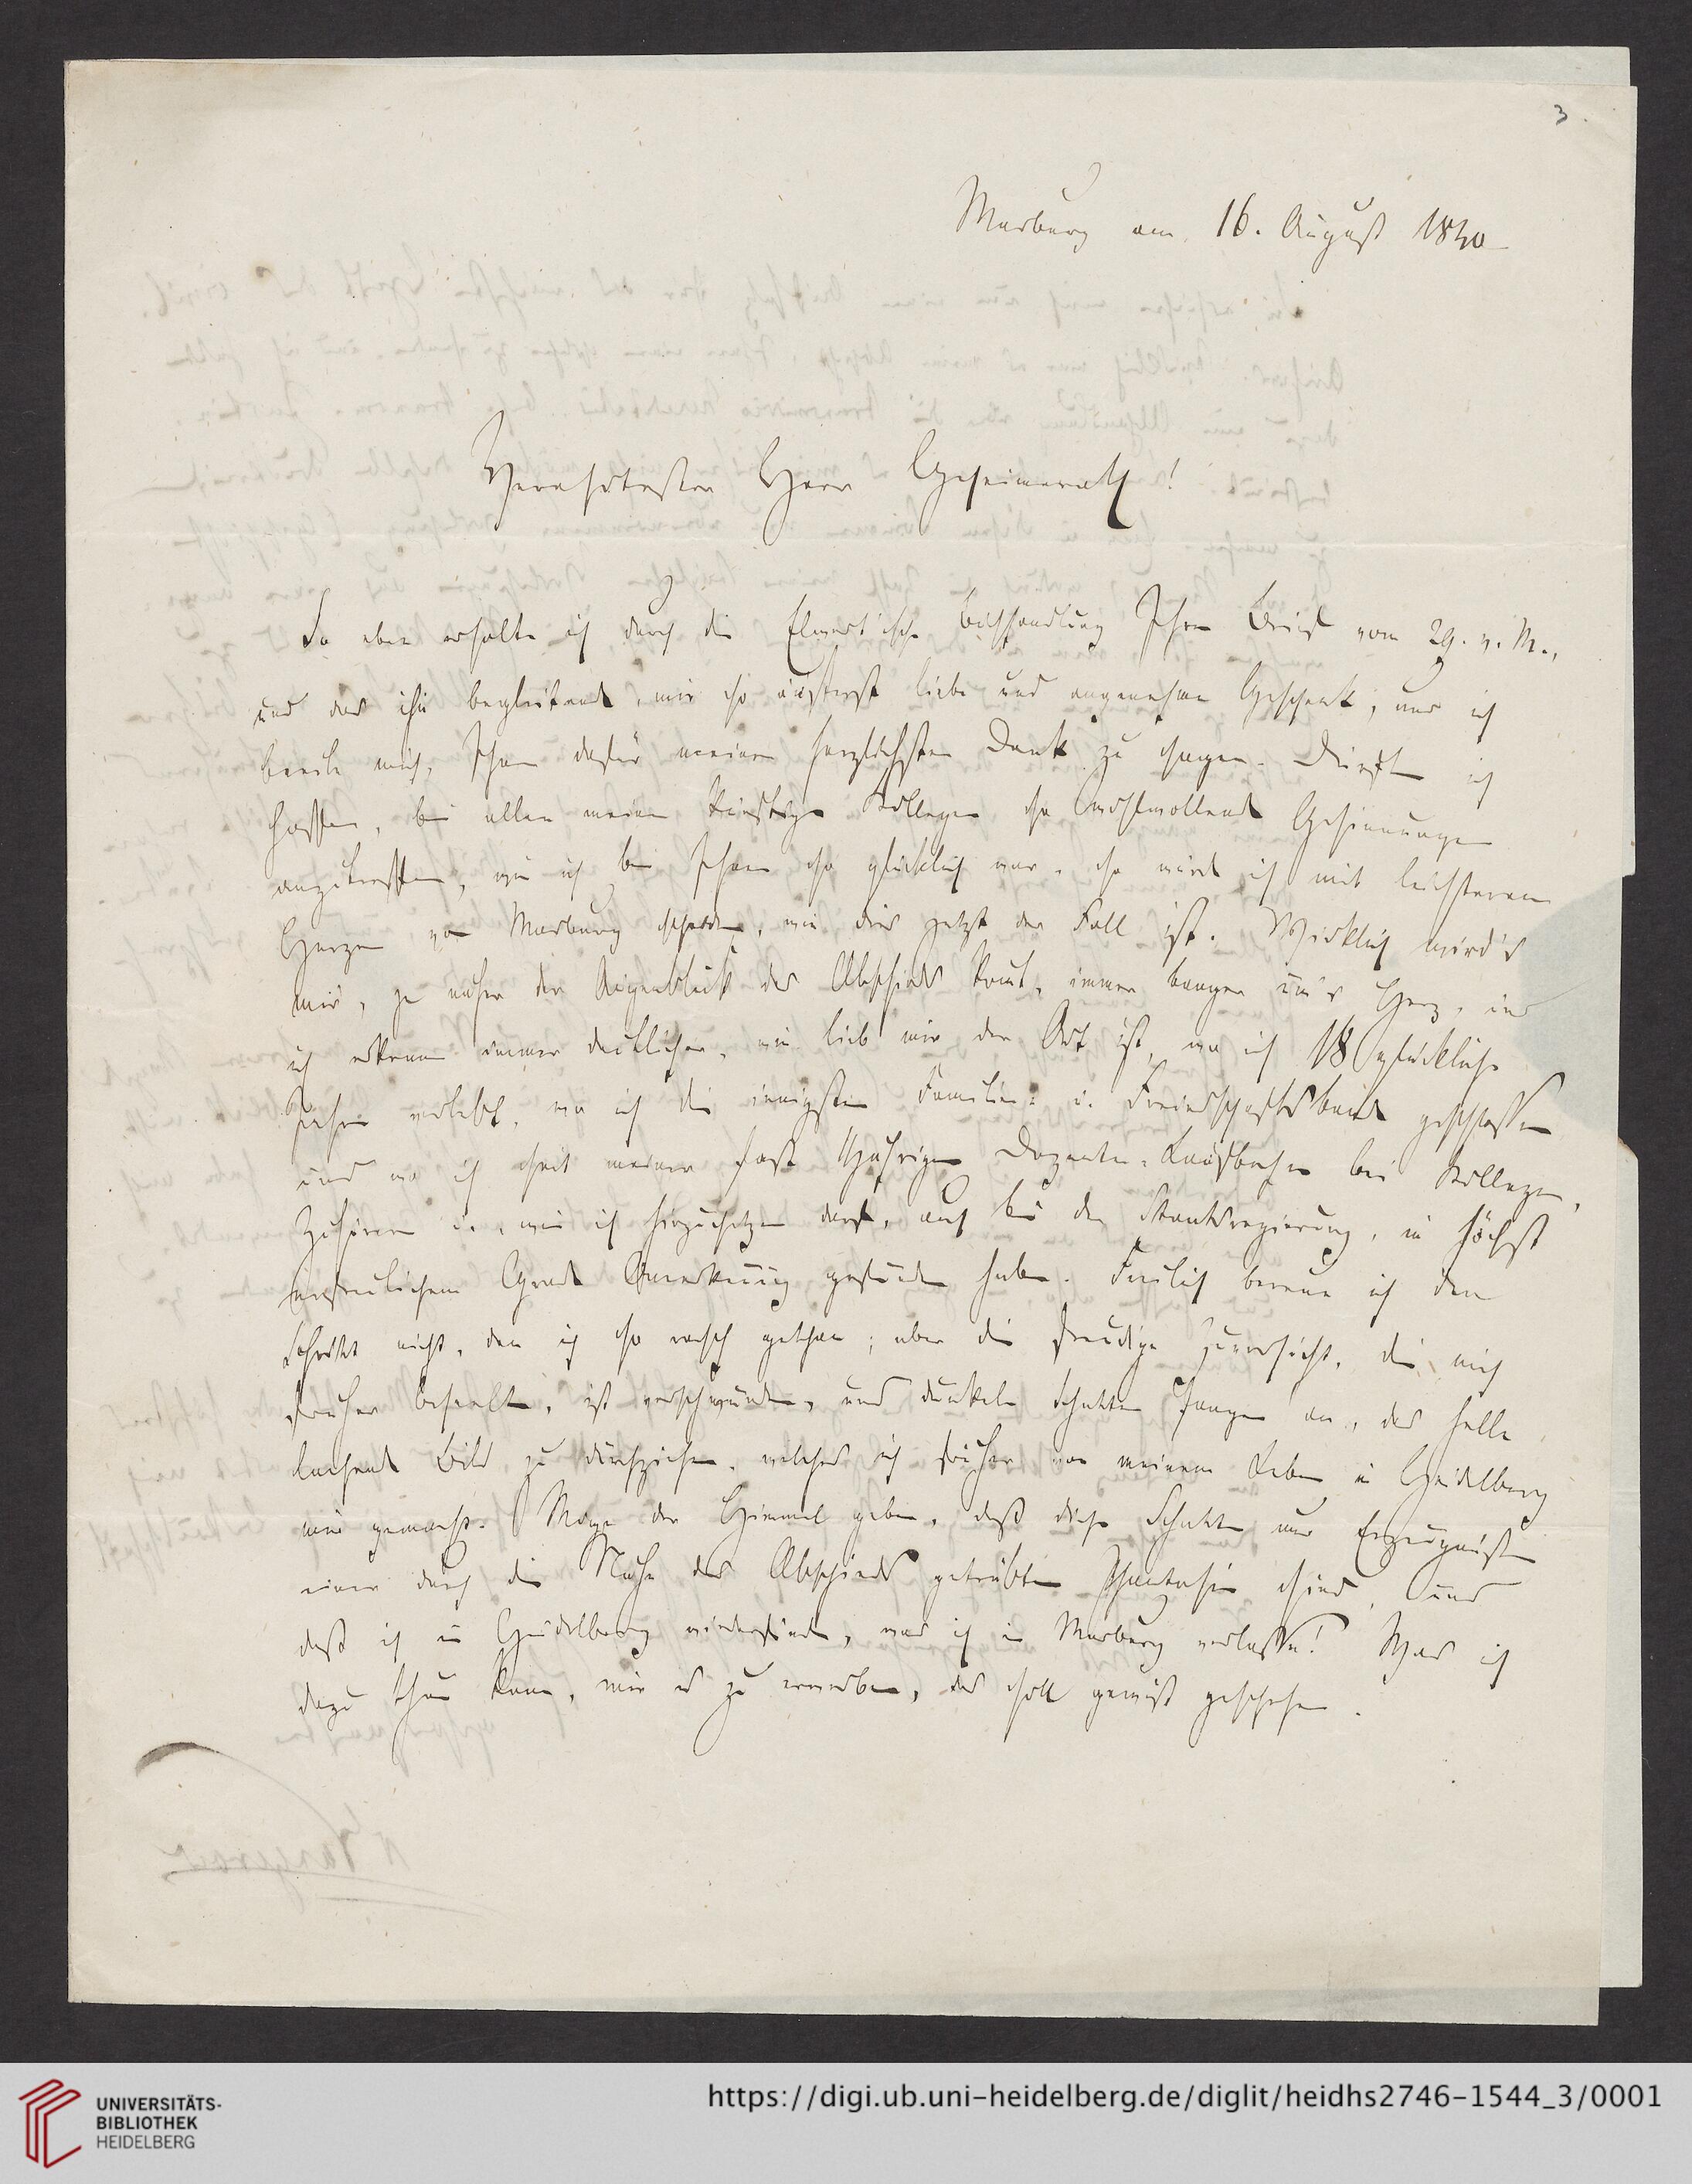 3.
Marburg am 16. August 1840
Verehrtester Herr Geheimerath!
So eben erhalte ich durch die Elwert'sche Buchhandlung Ihren Brief vom 29. v. M.,
und das ihn begleitende, mir so äußerst liebe und angenehme Geschenk, und ich
beeile mich, Ihnen dafür meinen herzlichsten Dank zu sagen. Dürfte ich
hoffen, bei allen meinen künftigen Kollegen so wohlwollende Gesinnungen
anzutreffen, wie ich bei Ihnen so glücklich war, so würde ich mit leichterem
Herzen von Marburg scheiden, wie dies jetzt der Fall ist. Wirklich wird's
mir, je näher der Augenblick des Abschieds komt, immer banger um's Herz, und
ich erkenne immer deutlicher, wie lieb mir der Ort ist, wo ich 18 glückliche
Jahre verlebt, wo ich die innigsten Familien- u. Freundschaftsbande geschlossen
und wo ich seit meiner fast jährigen Dozenten-Laufbahn bei Kollegen,
Zuhörern u., wie ich hinzusetzen darf, auch bei der Staatsregierung, in höchst
erfreulichem Grade Anerkennung gefunden habe. Freilich bereue ich den
Schritt nicht, den ich so rasch gethan; aber die freudige Zuversicht, die mich
früher beseelte, ist verschwunden, und dunkele Schatten fangen an, das helle
lachende Bild zu durchziehen, welches ich früher von meinem Leben in Heidelberg
mir gemacht. Möge der Himmel geben, daß diese Schatten nur Erzeugnisse
einer durch die Nähe des Abschieds getrübten Phantasie sind, und
daß ich in Heidelberg wiederfinde, was ich in Marburg verlasse! Was ich
dazu thun kann, mir es zu erwerben, das soll gewiß geschehen.
UNIVERSITÄTS-
BIBLIOTHEK
HEIDELBERG
https://digi.ub.uni-heidelberg.de/diglit/heidhs2746-1544_3/0001